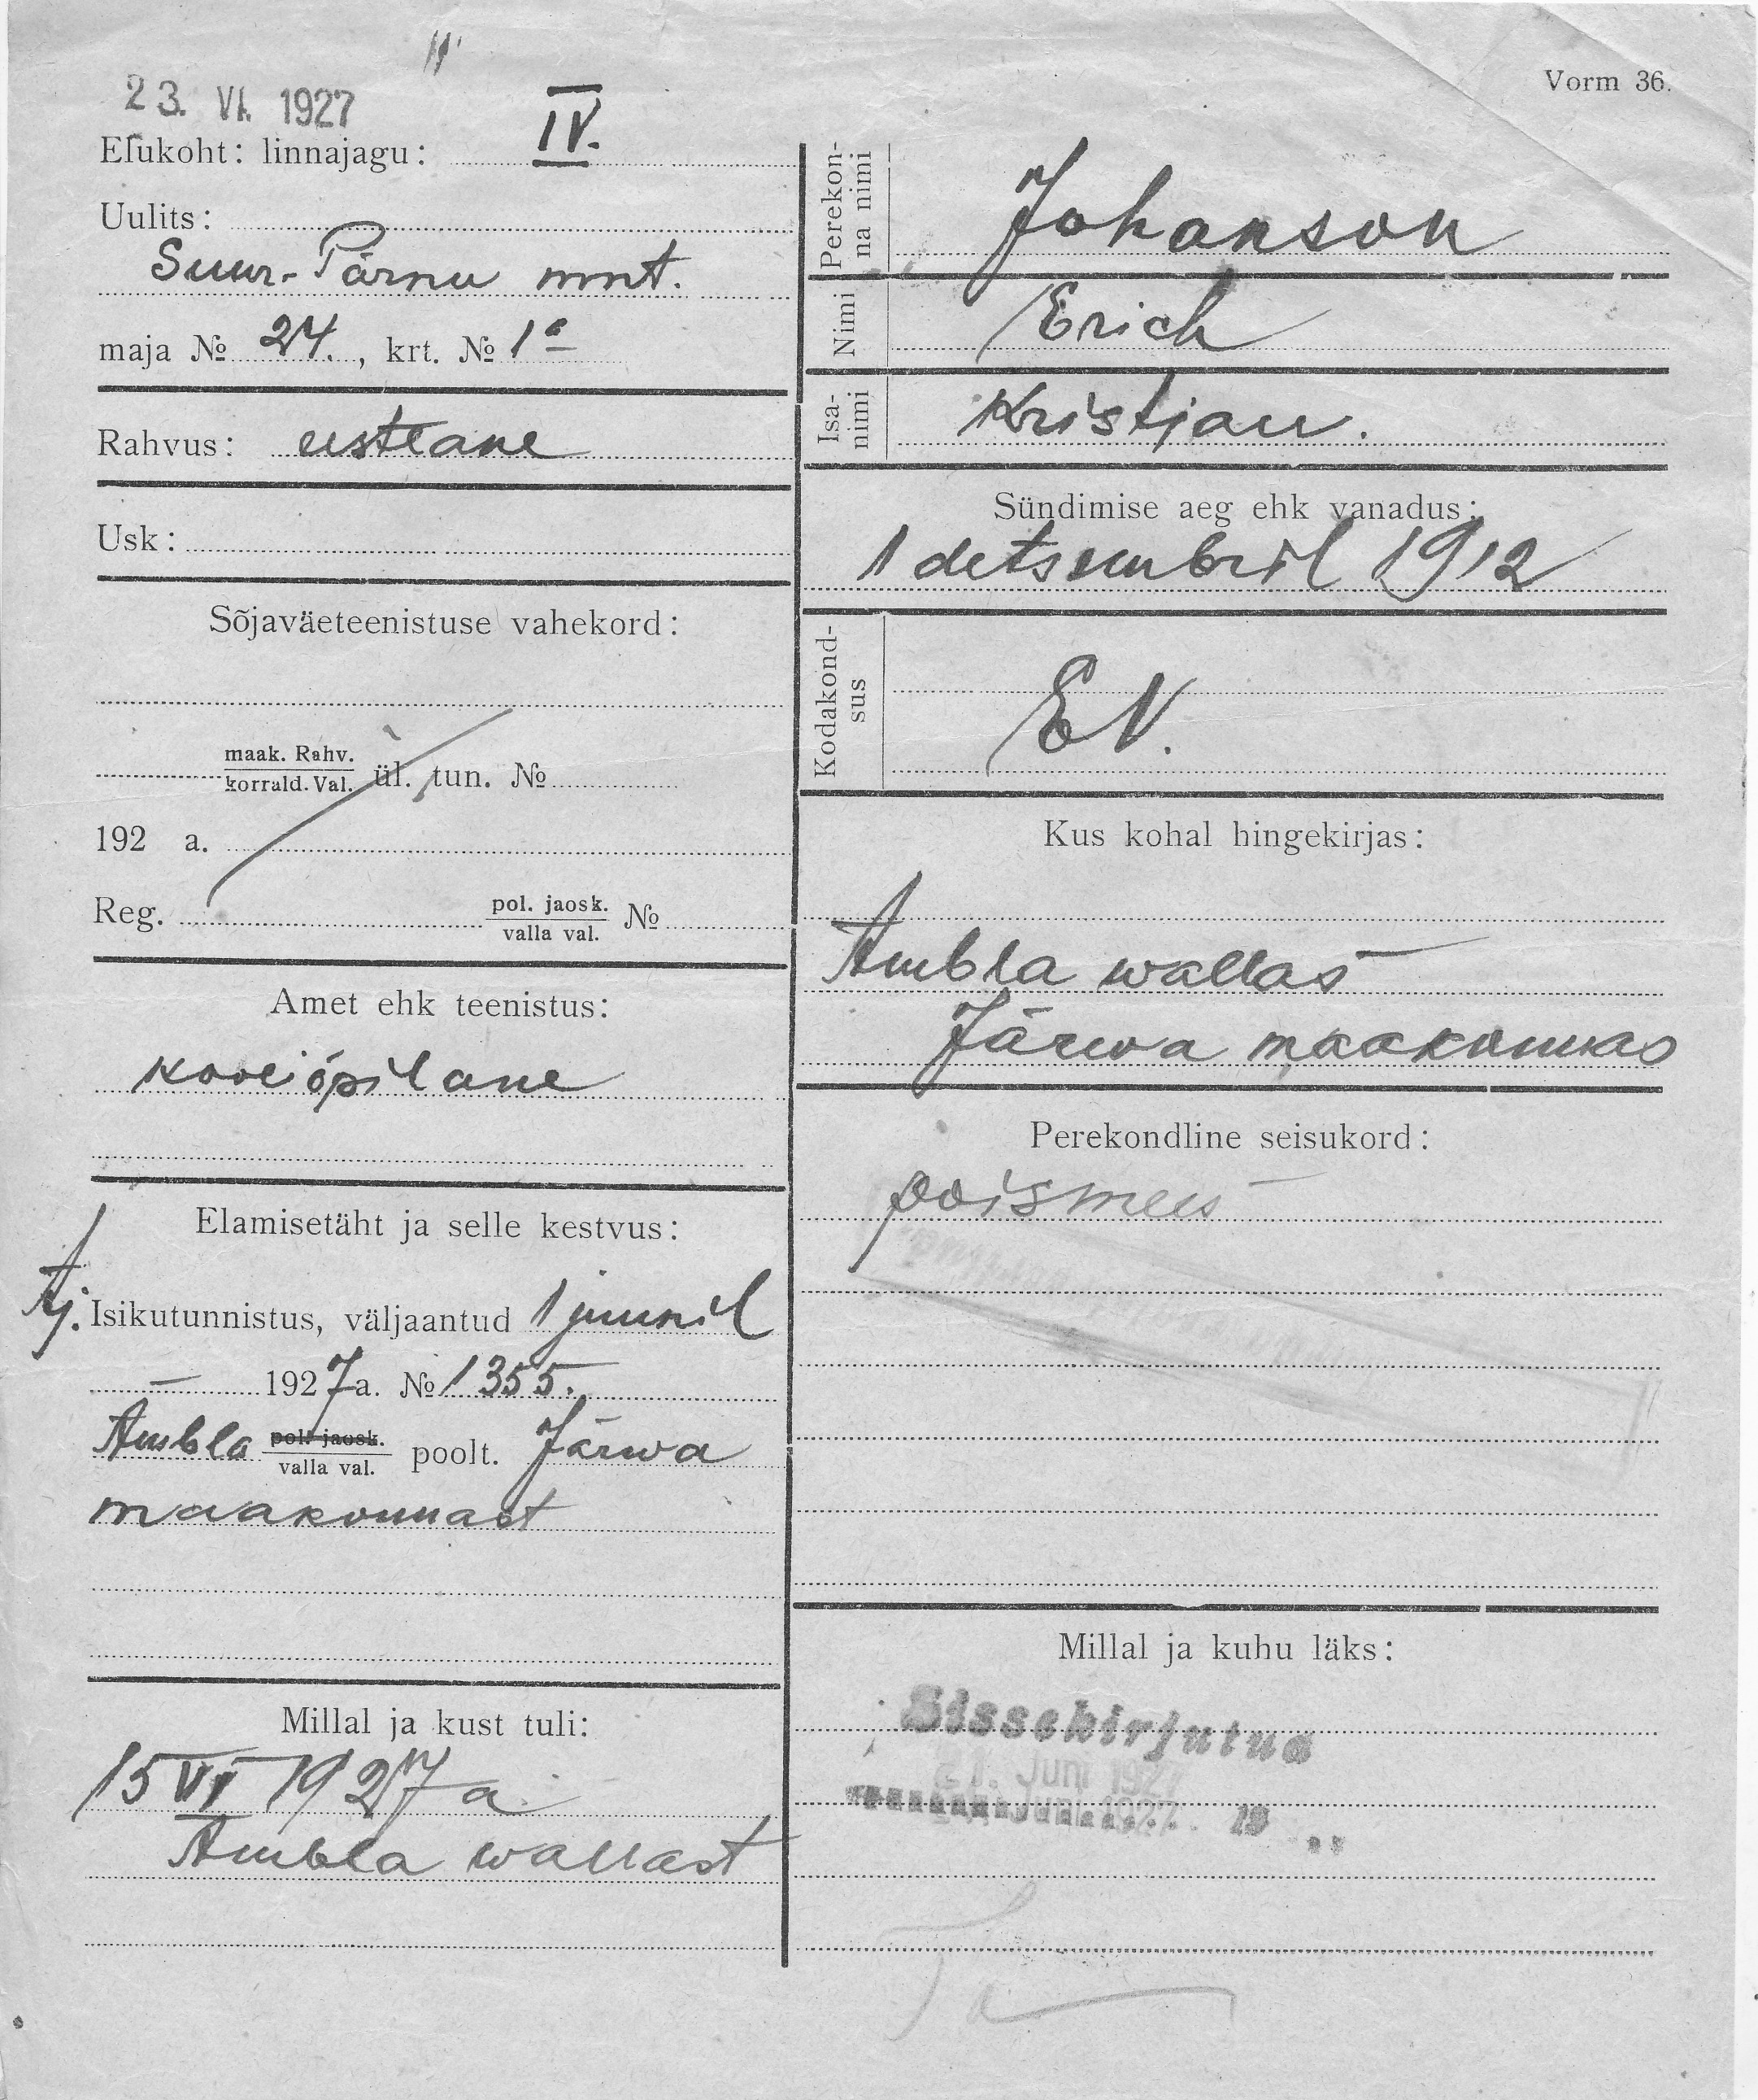 Vorm 36.
23. VI. 1927
Elukoht: linnajagu: IV.
Uulits:
Suur-Pärnu mnt.
maja № 24., krt. № 1ᵃ
Rahvus: eestlane
Usk:
Sõjaväeteenistuse vahekord:
maak. Rahv.
korrald. Val. ül. tun. №
192 a.
Reg. pol. jaosk. №
valla val.
Amet ehk teenistus:
kooliõpilane
Elamisetäht ja selle kestvus:
Aj. Isikutunnistus, väljaantud 1 juunil
— 1927 a. № 1355.
Ambla pol. jaosk. poolt. Järwa
valla val.
maakonnast
Millal ja kust tuli:
15 VI 1927 a.
Ambla wallast
Perekon-
na nimi
Johanson
Nimi Erich
Isa-
nimi
Kristjan.
Sündimise aeg ehk vanadus:
1 detsembril 1912
Kodakond-
sus
E.V.
Kus kohal hingekirjas:
Ambla wallas
Järwa maakonnas
Perekondline seisukord:
poismees
Millal ja kuhu läks:
Sissekirjutud
21. Juni 1927